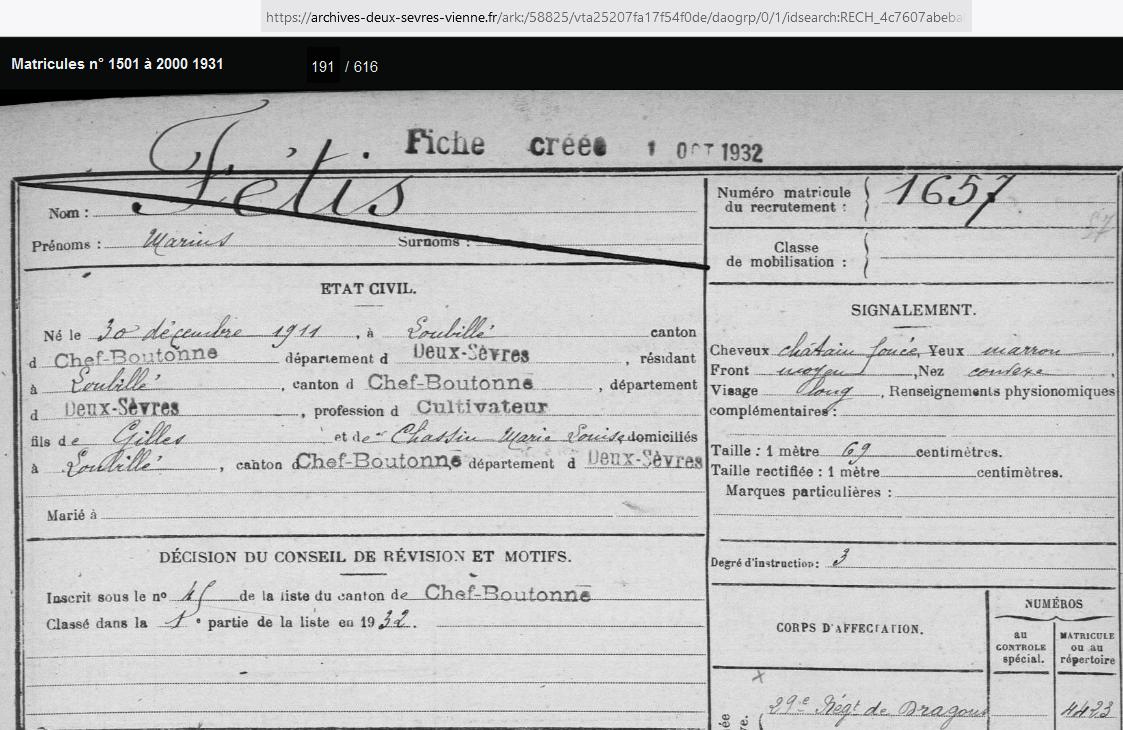 https://archives-deux-sevres-vienne.fr/ark:/58825/vta25207fa17f54f0de/daogrp/0/1/idsearch:RECH_4c7607abeba
Matricules n° 1501 à 2000 1931 191 / 616
Fiche créée 1 OCT 1932
Nom : Fétis
Prénoms : Marius Surnoms :
ETAT CIVIL.
Né le 30 décembre 1911, à Loubillé canton
d Chef-Boutonne département d Deux-Sèvres, résidant
à Loubillé, canton d Chef-Boutonne, département
d Deux-Sèvres, profession d Cultivateur
fils de Gilles et de Chassin Marie Louise domiciliés
à Loubillé, canton d Chef-Boutonne département d Deux-Sèvres
Marié à
DÉCISION DU CONSEIL DE RÉVISION ET MOTIFS.
Inscrit sous le nº 45 de la liste du canton de Chef-Boutonne
Classé dans la 1e partie de la liste en 1932.
Numéro matricule du recrutement : 1657
Classe de mobilisation :
SIGNALEMENT.
Cheveux châtain foncé, Yeux marron,
Front moyen, Nez convexe,
Visage long, Renseignements physionomiques
complémentaires :
Taille : 1 mètre 69 centimètres.
Taille rectifiée : 1 mètre centimètres.
Marques particulières :
Degré d'instruction : 3
CORPS D'AFFECTATION.
NUMÉROS
au CONTROLE spécial.
MATRICULE ou au répertoire
29e Régt de Dragons 4423